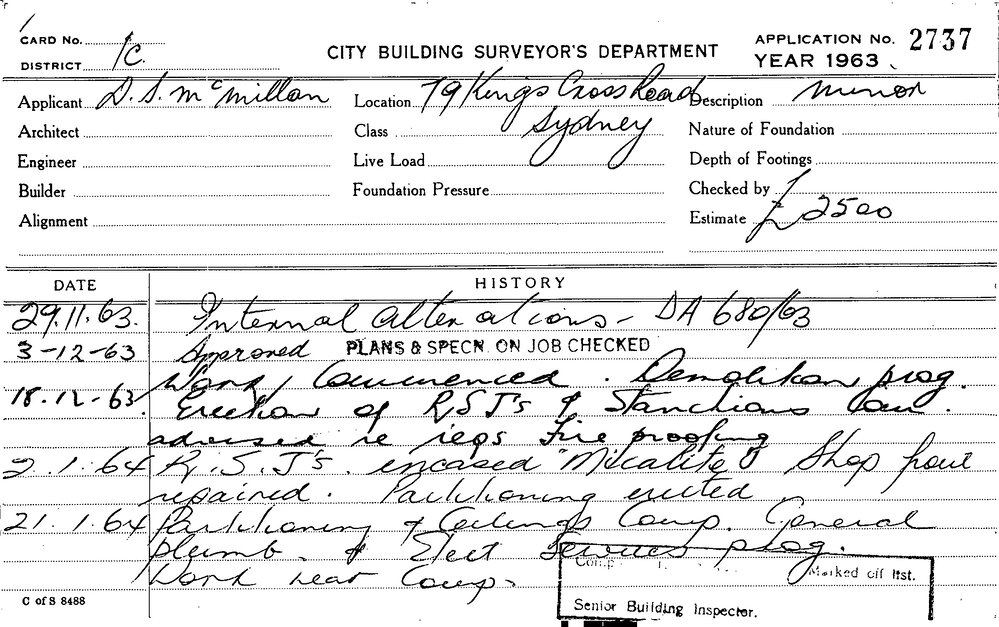 CARD No.
DISTRICT 1C.
CITY BUILDING SURVEYOR'S DEPARTMENT
APPLICATION No. 2737
YEAR 1963
Applicant D. S. McMillan
Location 79 Kings Cross Road
Sydney
Description Minor
Architect
Class
Nature of Foundation
Engineer
Live Load
Depth of Footings
Builder
Foundation Pressure
Checked by
Alignment
Estimate £2500
DATE HISTORY
29.11.63. Internal alterations - DA 680/63
3-12-63 Approved PLANS & SPECN. ON JOB CHECKED
Work Commenced. Demolition prog.
18.12-63. Erection of R.S.J's & Stanchions
advised re reqs Fire proofing
2.1.64 R.S.J's. encased "Micalite" Shop front
repaired. Partitioning erected
21.1.64 Partitioning & Ceilings Comp. General
plumb. & Elect Services prog.
Work near Comp.
Marked off list.
Senior Building Inspector.
C of S 8488